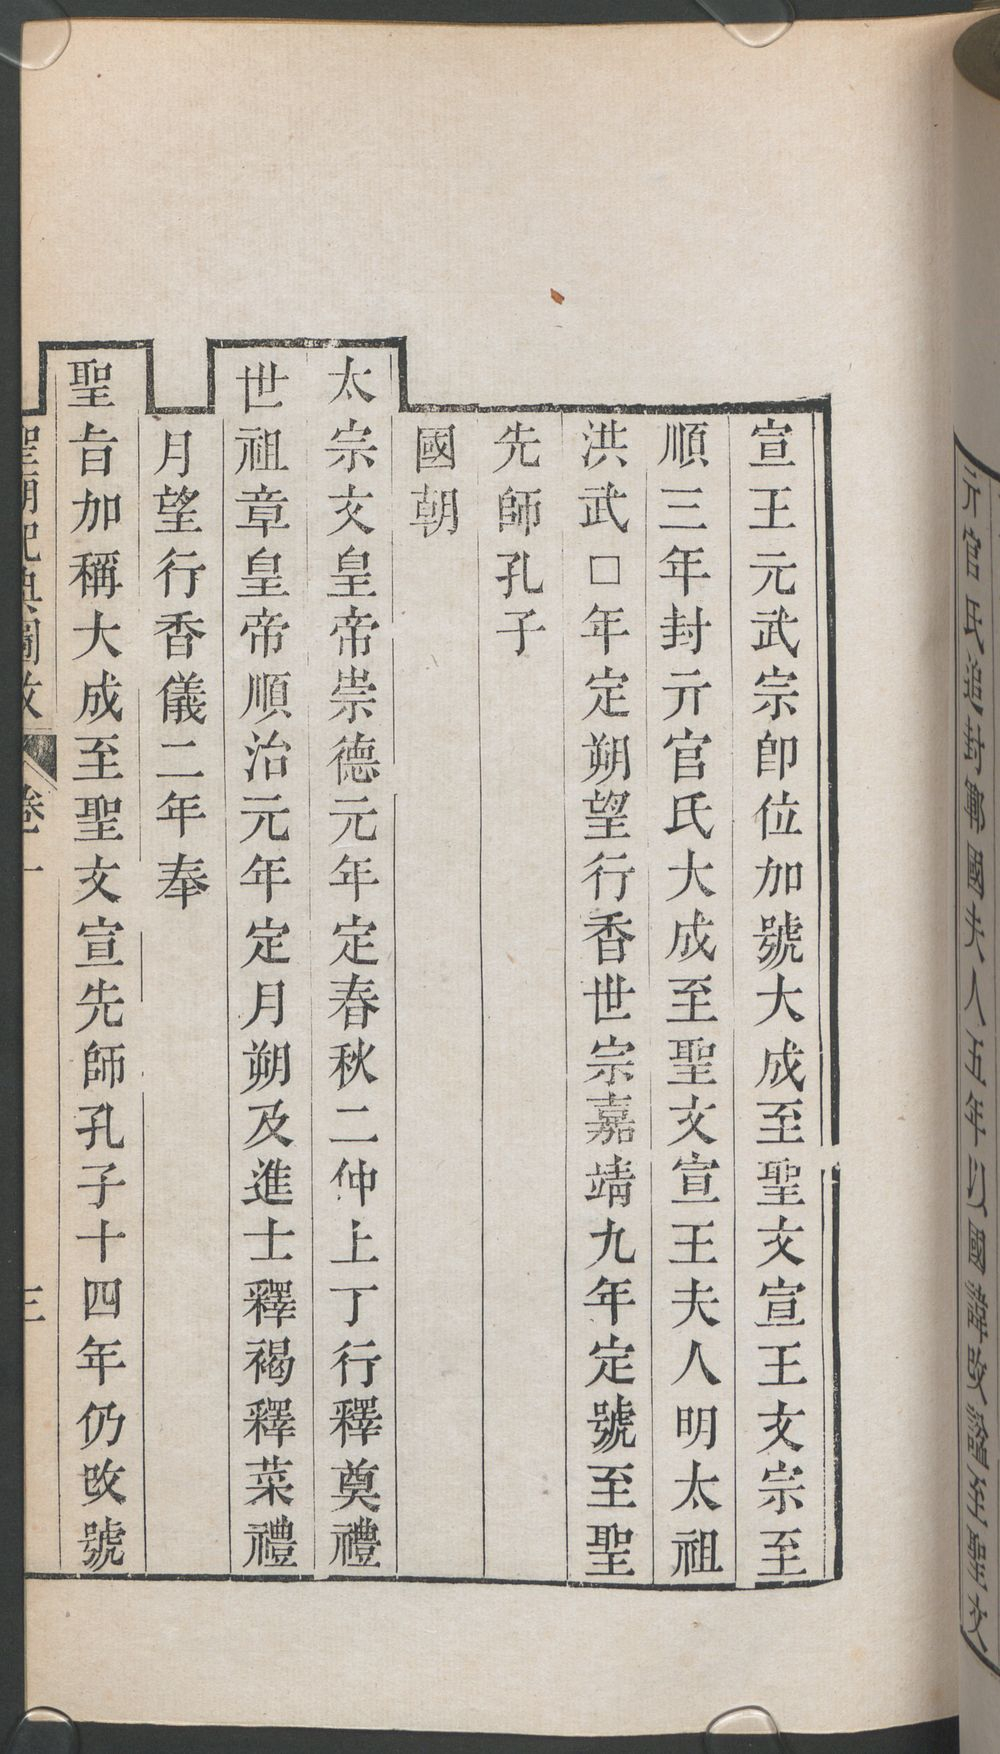 亓官氏追封鄆國夫人五年以國諱改謚至聖文
宣王元武宗卽位加號大成至聖文宣王文宗至
順三年封亓官氏大成至聖文宣王夫人明太祖
洪武□年定朔望行香世宗嘉靖九年定號至聖
先師孔子
國朝
太宗文皇帝崇德元年定春秋二仲上丁行釋奠禮
世祖章皇帝順治元年定月朔及進士釋褐釋菜禮
月望行香儀二年奉
聖旨加稱大成至聖文宣先師孔子十四年仍改號
聖廟祀典圖攷 卷一 三